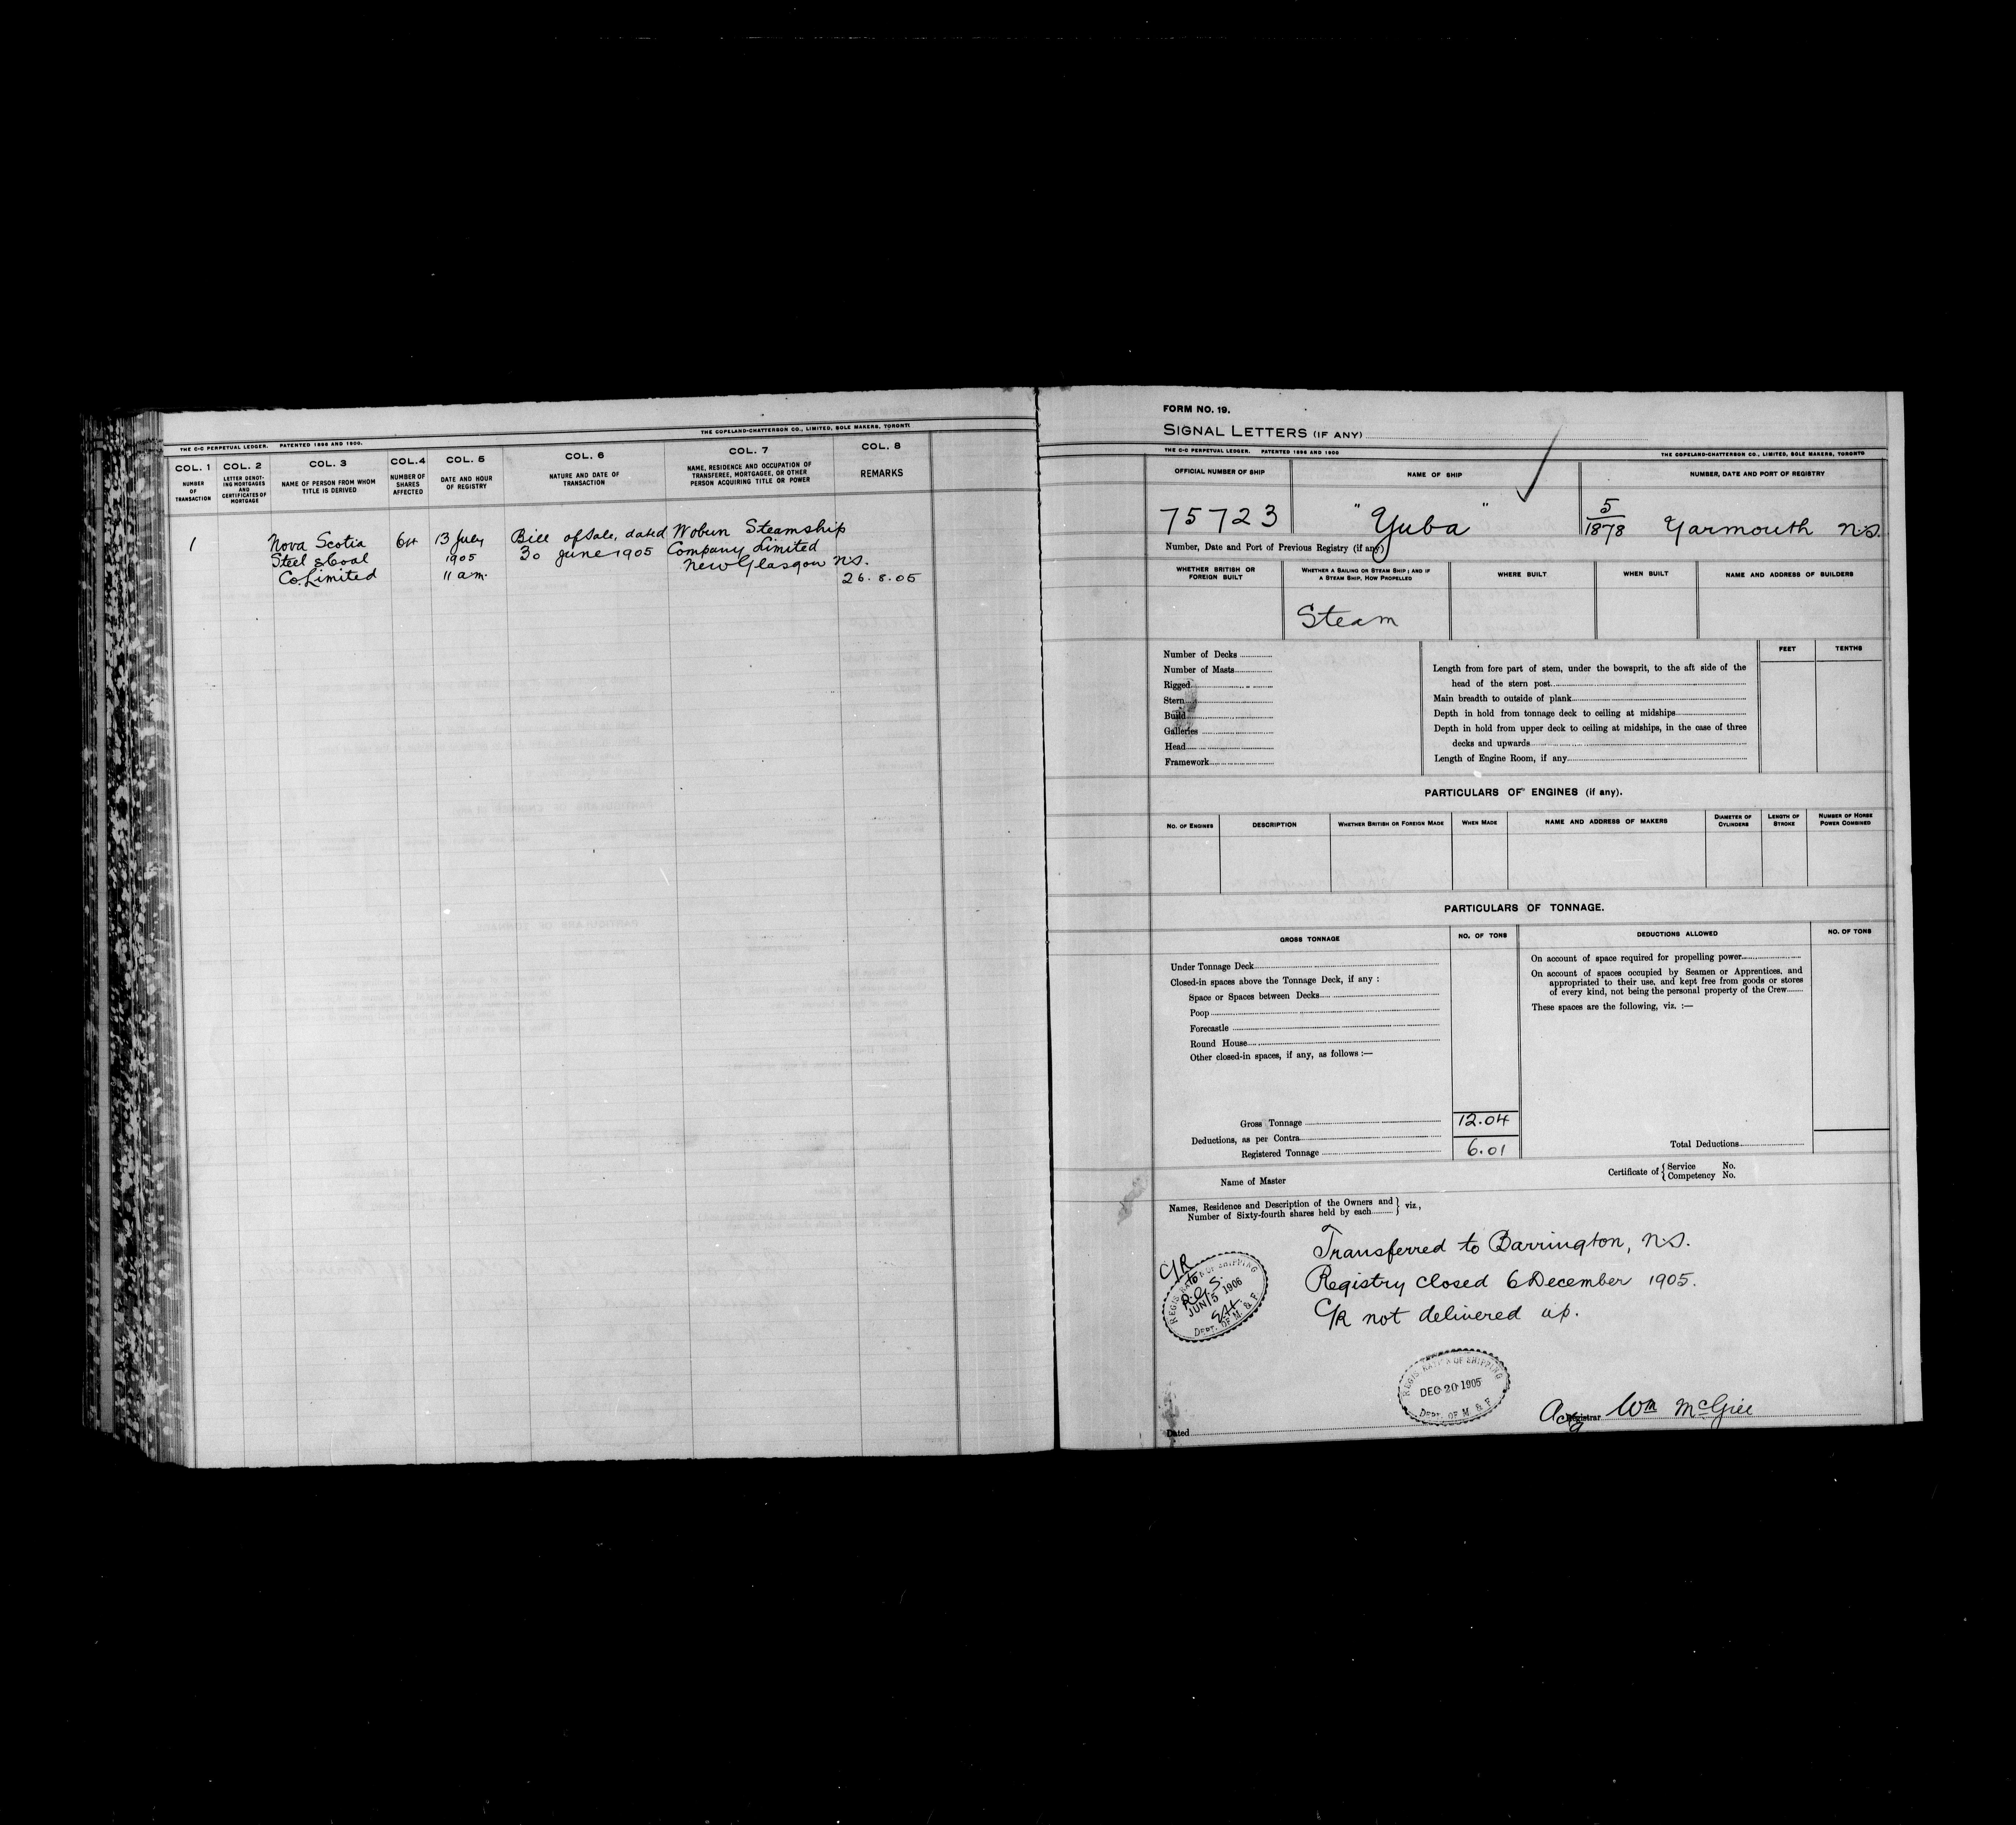 THE C-C PERPETUAL LEDGER. PATENTED 1896 AND 1900.
THE COPELAND-CHATTERSON CO., LIMITED, SOLE MAKERS, TORONTO
COL. 1
NUMBER
OF
TRANSACTION
COL. 2
LETTER DENOT-
ING MORTGAGES
AND
CERTIFICATES OF
MORTGAGE
COL. 3
NAME OF PERSON FROM WHOM
TITLE IS DERIVED
COL. 4
NUMBER OF
SHARES
AFFECTED
COL. 5
DATE AND HOUR
OF REGISTRY
COL. 6
NATURE AND DATE OF
TRANSACTION
COL. 7
NAME, RESIDENCE AND OCCUPATION OF
TRANSFEREE, MORTGAGEE, OR OTHER
PERSON ACQUIRING TITLE OR POWER
COL. 8
REMARKS
1
Nova Scotia
Steel & Coal
Co. Limited
64
13 July
1905
11 a.m.
Bill of Sale, dated
30 June 1905
Woburn Steamship
Company Limited
New Glasgow N.S.
26.8.05
FORM NO. 19.
SIGNAL LETTERS (IF ANY)
THE C-C PERPETUAL LEDGER. PATENTED 1896 AND 1900
THE COPELAND-CHATTERSON CO., LIMITED, SOLE MAKERS, TORONTO
OFFICIAL NUMBER OF SHIP
NAME OF SHIP
NUMBER, DATE AND PORT OF REGISTRY
75723
"Yuba"
5
1878
Yarmouth N.S.
Number, Date and Port of Previous Registry (if any)
WHETHER BRITISH OR
FOREIGN BUILT
WHETHER A SAILING OR STEAM SHIP; AND IF
A STEAM SHIP, HOW PROPELLED
WHERE BUILT
WHEN BUILT
NAME AND ADDRESS OF BUILDERS
Steam
Number of Decks
Number of Masts
Rigged
Stern
Build
Galleries
Head
Framework
FEET
TENTHS
Length from fore part of stem, under the bowsprit, to the aft side of the
head of the stern post
Main breadth to outside of plank
Depth in hold from tonnage deck to ceiling at midships
Depth in hold from upper deck to ceiling at midships, in the case of three
decks and upwards
Length of Engine Room, if any
PARTICULARS OF ENGINES (if any).
NO. OF ENGINES
DESCRIPTION
WHETHER BRITISH OR FOREIGN MADE
WHEN MADE
NAME AND ADDRESS OF MAKERS
DIAMETER OF
CYLINDERS
LENGTH OF
STROKE
NUMBER OF HORSE
POWER COMBINED
PARTICULARS OF TONNAGE.
GROSS TONNAGE
NO. OF TONS
DEDUCTIONS ALLOWED
NO. OF TONS
Under Tonnage Deck
Closed-in spaces above the Tonnage Deck, if any :
Space or Spaces between Decks
Poop
Forecastle
Round House
Other closed-in spaces, if any, as follows :—
On account of space required for propelling power
On account of spaces occupied by Seamen or Apprentices, and
appropriated to their use, and kept free from goods or stores
of every kind, not being the personal property of the Crew
These spaces are the following, viz. :—
Gross Tonnage
12.04
Deductions, as per Contra
Registered Tonnage
6.01
Total Deductions
Name of Master
Certificate of { Service No.
Competency No.
Names, Residence and Description of the Owners and
Number of Sixty-fourth shares held by each } viz.,
Transferred to Barrington, N.S.
Registry closed 6 December 1905.
C/R not delivered up.
C/R
to
R.G.S.
REGISTRATION OF SHIPPING
JUN 15 1906
DEPT. OF M. & F.
REGISTRATION OF SHIPPING
DEC 20 1905
DEPT. OF M & F.
Actg Registrar Wm McGill
Dated